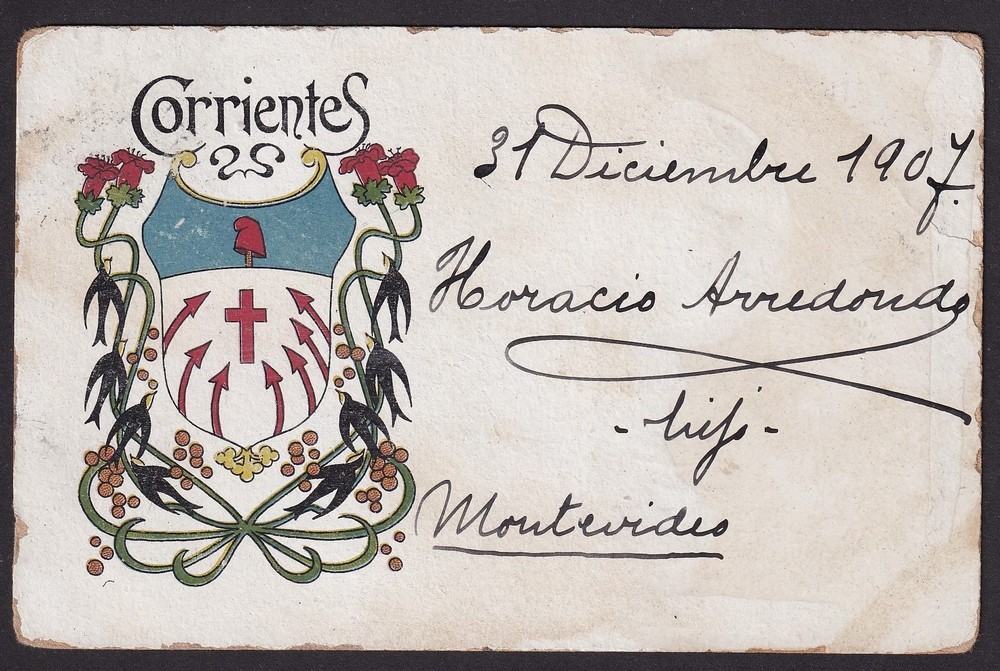 Corrientes
31 Diciembre 1907.
Horacio Arredondo
- hijo -
Montevideo